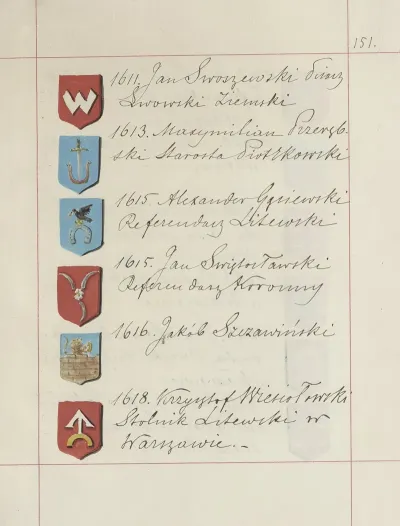 151.
1611. Jan Swoszewski Pisarz
Lwowski Ziemski
1613. Maxymilian Przeręb-
ski Starosta Piotrkowski
1615. Alexander Gąsiewski
Referendarz Litewski
1615. Jan Swiętosławski
Referendarz Koronny
1616. Jakób Szczawiński
1618. Krzysztof Wiesiołowski
Stolnik Litewski w
Warszawie.-